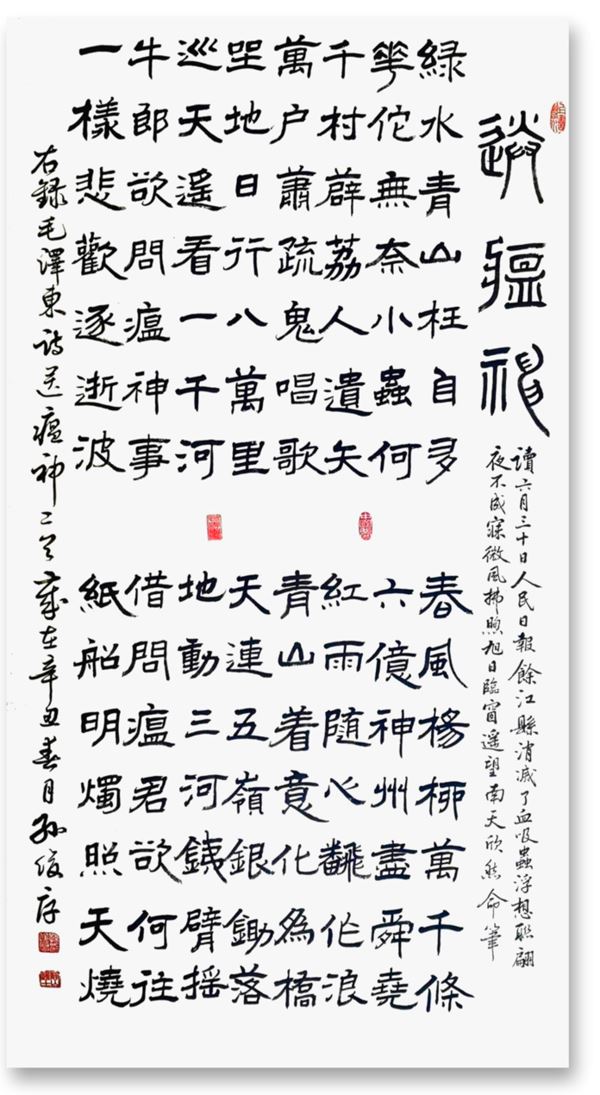 送瘟神
讀六月三十日人民日報餘江縣消滅了血吸蟲浮想聯翩
夜不成寐微風拂煦旭日臨窗遥望南天欣然命筆
綠水青山枉自多
華佗無奈小蟲何
千村薜荔人遺矢
萬户蕭疏鬼唱歌
坐地日行八萬里
巡天遥看一千河
牛郎欲問瘟神事
一樣悲歡逐逝波
春風楊柳萬千條
六億神州盡舜堯
紅雨隨心飜作浪
青山着意化為橋
天連五嶺銀鋤落
地動三河銕臂摇
借問瘟君欲何往
紙船明燭照天燒
右録毛澤東詩送瘟神二首歲在辛丑春月孫俊存